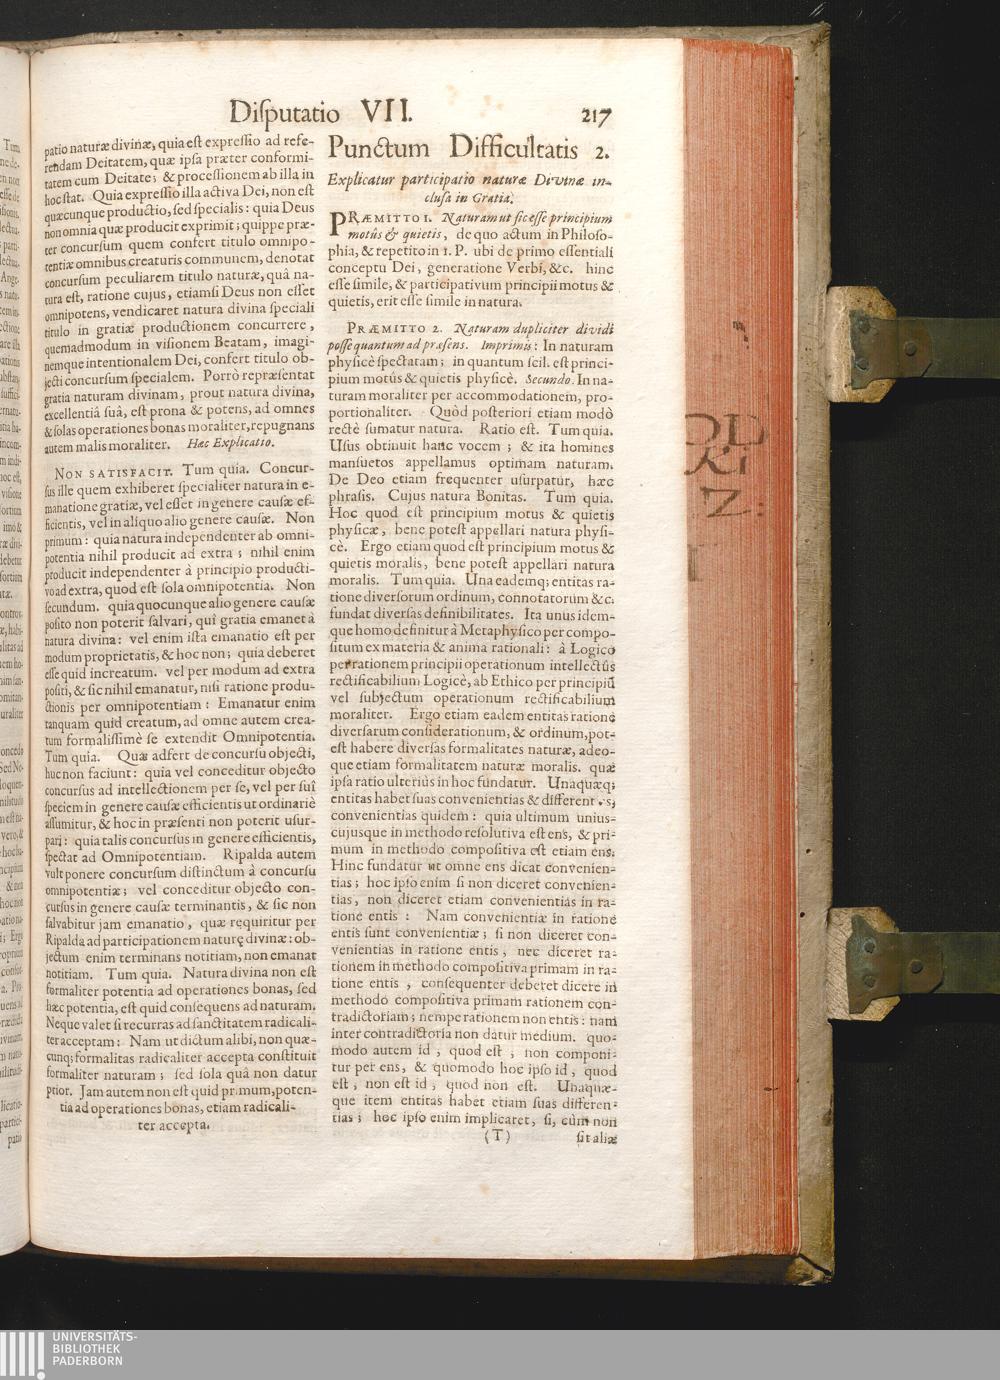 Disputatio VII. 217
patio naturæ divinæ, quia est expressio ad refe-
rendam Deitatem, quæ ipsa præter conformi-
tatem cum Deitate; & processionem ab illa in
hoc stat. Quia expressio illa activa Dei, non est
quæcunque productio, sed specialis: quia Deus
non omnia quæ producit exprimit; quippe præ-
ter concursum quem confert titulo omnipo-
tentiæ omnibus creaturis communem, denotat
concursum peculiarem titulo naturæ, quâ na-
tura est, ratione cujus, etiamsi Deus non esset
omnipotens, vendicaret natura divina speciali
titulo in gratiæ productionem concurrere,
quemadmodum in visionem Beatam, imagi-
nemque intentionalem Dei, confert titulo ob-
jecti concursum specialem. Porrò repræsentat
gratia naturam divinam, prout natura divina,
excellentiâ suâ, est prona & potens, ad omnes
& solas operationes bonas moraliter, repugnans
autem malis moraliter. Hæc Explicatio.
NON SATISFACIT. Tum quia. Concur-
sus ille quem exhiberet specialiter natura in e-
manatione gratiæ, vel esset in genere causæ ef-
ficientis, vel in aliquo alio genere causæ. Non
primum: quia natura independenter ab omni-
potentia nihil producit ad extra; nihil enim
producit independenter à principio producti-
vo ad extra, quod est sola omnipotentia. Non
secundum. quia quocunque alio genere causæ
posito non poterit salvari, quî gratia emanet à
natura divina: vel enim ista emanatio est per
modum proprietatis, & hoc non; quia deberet
esse quid increatum. vel per modum ad extra
positi, & sic nihil emanatur, nisi ratione produ-
ctionis per omnipotentiam: Emanatur enim
tanquam quid creatum, ad omne autem crea-
tum formalissimè se extendit Omnipotentia.
Tum quia. Quæ adfert de concursu objecti,
huc non faciunt: quia vel conceditur objecto
concursus ad intellectionem per se, vel per suî
speciem in genere causæ efficientis ut ordinariè
assumitur, & hoc in præsenti non poterit usur-
pari: quia talis concursus in genere efficientis,
spectat ad Omnipotentiam. Ripalda autem
vult ponere concursum distinctum à concursu
omnipotentiæ; vel conceditur objecto con-
cursus in genere causæ terminantis, & sic non
salvabitur jam emanatio, quæ requiritur per
Ripalda ad participationem naturę divinæ: ob-
jectum enim terminans notitiam, non emanat
notitiam. Tum quia. Natura divina non est
formaliter potentia ad operationes bonas, sed
hæc potentia, est quid consequens ad naturam.
Neque valet si recurras ad sanctitatem radicali-
ter acceptam: Nam ut dictum alibi, non quæ-
cunq; formalitas radicaliter accepta constituit
formaliter naturam; sed sola quâ non datur
prior. Jam autem non est quid primum, poten-
tia ad operationes bonas, etiam radicali-
ter accepta.
Punctum Difficultatis 2.
Explicatur participatio naturæ Divinæ in-
clusa in Gratia.
PRÆMITTO 1. Naturam ut sic esse principium
motûs & quietis, de quo actum in Philoso-
phia, & repetito in 1. P. ubi de primo essentiali
conceptu Dei, generatione Verbi, &c. hinc
esse simile, & participativum principii motus &
quietis, erit esse simile in natura.
PRÆMITTO 2. Naturam dupliciter dividi
posse quantum ad præsens. Imprimis: In naturam
physicè spectatam; in quantum scil. est princi-
pium motûs & quietis physicè. Secundo. In na-
turam moraliter per accommodationem, pro-
portionaliter. Quòd posteriori etiam modò
rectè sumatur natura. Ratio est. Tum quia.
Usus obtinuit hanc vocem; & ita homines
mansuetos appellamus optimam naturam.
De Deo etiam frequenter usurpatur, hæc
phrasis. Cujus natura Bonitas. Tum quia.
Hoc quod est principium motus & quietis
physicæ, bene potest appellari natura physi-
cè. Ergo etiam quod est principium motus &
quietis moralis, bene potest appellari natura
moralis. Tum quia. Una eademq; entitas ra-
tione diversorum ordinum, connotatorum &c.
fundat diversas definibilitates. Ita unus idem-
que homo definitur à Metaphysico per compo-
situm ex materia & anima rationali: à Logico
per rationem principii operationum intellectûs
rectificabilium Logicè, ab Ethico per principiũ
vel subjectum operationum rectificabilium
moraliter. Ergo etiam eadem entitas ratione
diversarum considerationum, & ordinum, pot-
est habere diversas formalitates naturæ, adeo-
que etiam formalitatem naturæ moralis. quæ
ipsa ratio ulteriùs in hoc fundatur. Unaquæq;
entitas habet suas convenientias & differentias;
convenientias quidem: quia ultimum unius-
cujusque in methodo resolutiva est ens, & pri-
mum in methodo compositiva est etiam ens.
Hinc fundatur ut omne ens dicat convenien-
tias; hoc ipso enim si non diceret convenien-
tias, non diceret etiam convenientias in ra-
tione entis: Nam convenientiæ in ratione
entis sunt convenientiæ; si non diceret con-
venientias in ratione entis, nec diceret ra-
tionem in methodo compositiva primam in ra-
tione entis, consequenter deberet dicere in
methodo compositiva primam rationem con-
tradictoriam; nempe rationem non entis: nam
inter contradictoria non datur medium. quo-
modo autem id, quod est, non componi-
tur per ens, & quomodo hoc ipso id, quod
est, non est id, quod non est. Unaquæ-
que item entitas habet etiam suas differen-
tias; hoc ipso enim implicaret, si, cùm non
(T) sit aliæ
UNIVERSITÄTS-
BIBLIOTHEK
PADERBORN